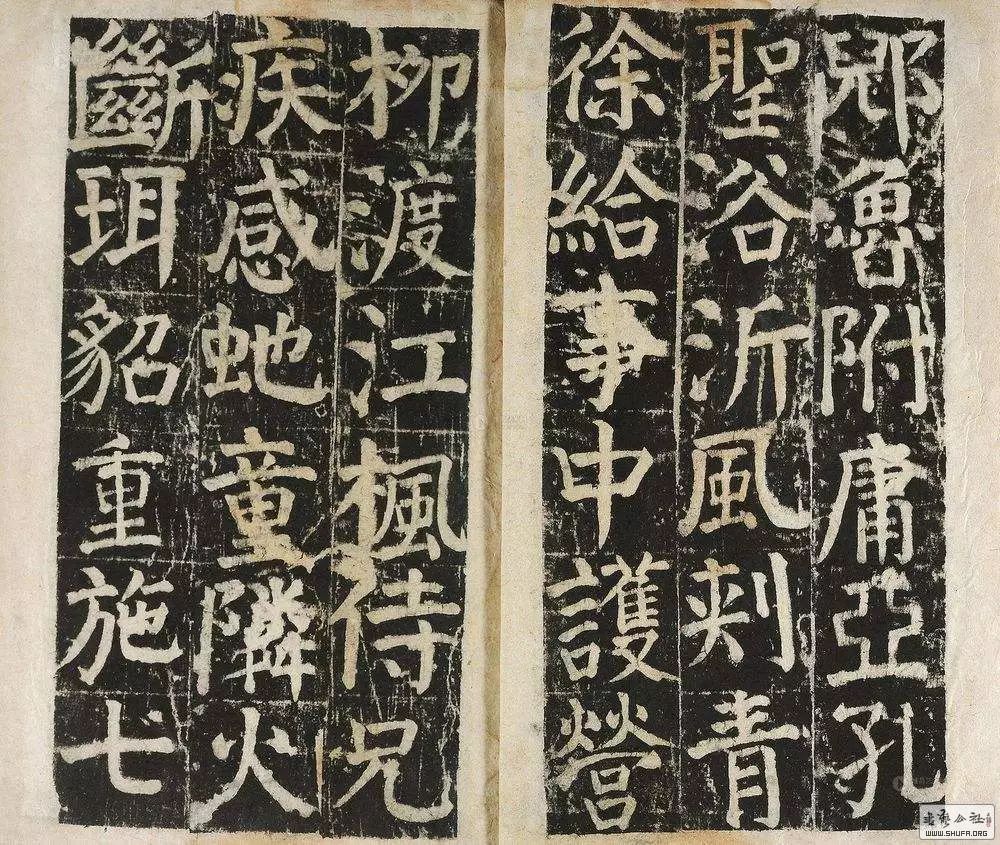 郳魯附庸亞孔
聖浴沂風刾青
徐給事中護營
柳渡江楓侍兄
疾感虵童隣火
斷珥貂重施弋
书艺公社
WWW.SHUFA.ORG